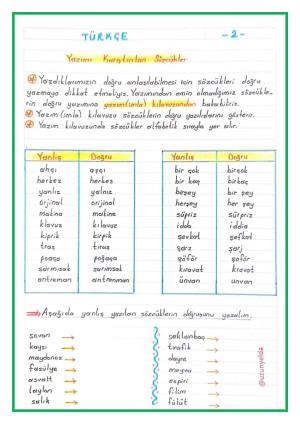 TÜRKÇE
-2-
Yazımı Karıştırılan Sözcükler
Yazdıklarımızın doğru anlaşılabilmesi için sözcükleri doğru
yazmaya dikkat etmeliyiz. Yazımından emin olmadığımız sözcükle-
rin doğru yazımına yazım(imla) kılavuzundan bakarız.
Yazım (imla) kılavuzu sözcüklerin doğru yazılışlarını gösterir.
Yazım kılavuzunda sözcükler alfabetik sırayla yer alır.
Yanlış Doğru
ahçı aşçı
herkez herkes
yanlız yalnız
orjinal orijinal
makina makine
klavuz kılavuz
kiprik kirpik
traş tıraş
poaça poğaça
sarmısak sarımsak
antreman antrenman
Yanlış Doğru
bir çok birçok
bir kaç birkaç
birşey bir şey
herşey her şey
süpriz sürpriz
idda iddia
şevkat şefkat
şarz şarj
şöför şoför
kıravat kravat
ünvan unvan
Aşağıda yanlış yazılan sözcüklerin doğrusunu yazalım.
savan
kaysı
maydonoz
fasülye
asvalt
laylon
salık
şaklanbaç
tırafik
dayre
meyva
espiri
filim
fülüt
@uzunyelda